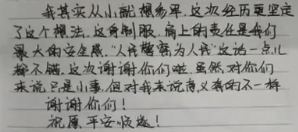 我其实从小就想参军，这次经历更坚定
了这个想法，这身制服、肩上的责任是我们
最大的安全感，“人民警察为人民”这话一点儿
都不错，这次谢谢你们啦，虽然对你们
来说只是小事，但对我来说意义真的不一样
谢谢你们！
祝愿平安顺遂！